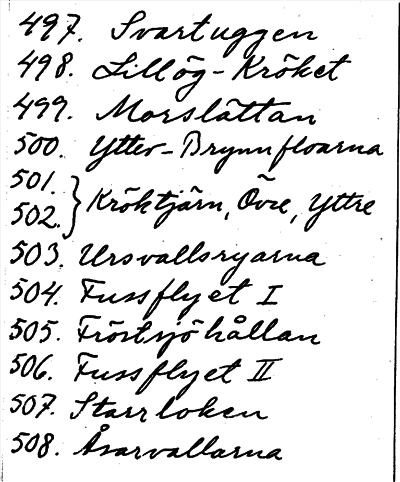 497. Svartuggen
498. Lillög-Kröket
499. Morslättan
500. Ytter-Brynnfloarna
501. } Kröktjärn, Övre, Yttre
502.
503. Ursvallsryarna
504. Fussflyet I
505. Fröstsjöhållan
506. Fussflyet II
507. Starrloken
508. Åsarvallarna